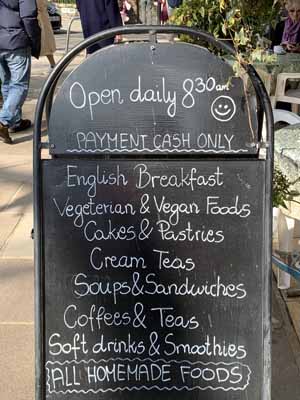 Open daily 8 30am
PAYMENT CASH ONLY
English Breakfast
Vegeterian & Vegan Foods
Cakes & Pastries
Cream Teas
Soups & Sandwiches
Coffees & Teas
Soft drinks & Smoothies
ALL HOMEMADE FOODS